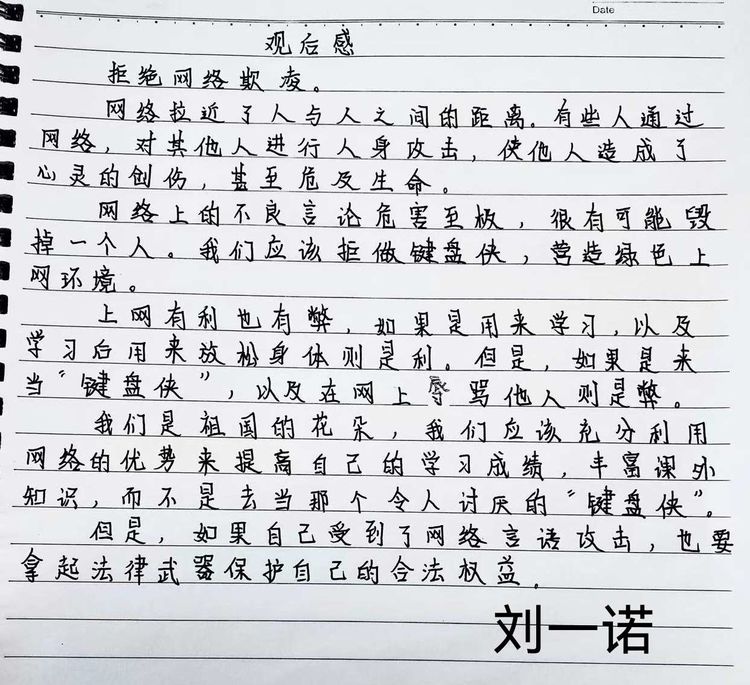 Date
观后感
拒绝网络欺凌。
网络拉近了人与人之间的距离.有些人通过
网络,对其他人进行人身攻击,使他人造成了
心灵的创伤,甚至危及生命。
网络上的不良言论危害至极,很有可能毁
掉一个人。我们应该拒做键盘侠,营造绿色上
网环境。
上网有利也有弊,如果是用来学习,以及
学习后用来放松身体则是利。但是,如果是来
当“键盘侠”,以及在网上辱骂他人则是弊。
我们是祖国的花朵,我们应该充分利用
网络的优势来提高自己的学习成绩,丰富课外
知识,而不是去当那个令人讨厌的“键盘侠”。
但是,如果自己受到了网络言语攻击,也要
拿起法律武器保护自己的合法权益.
刘一诺